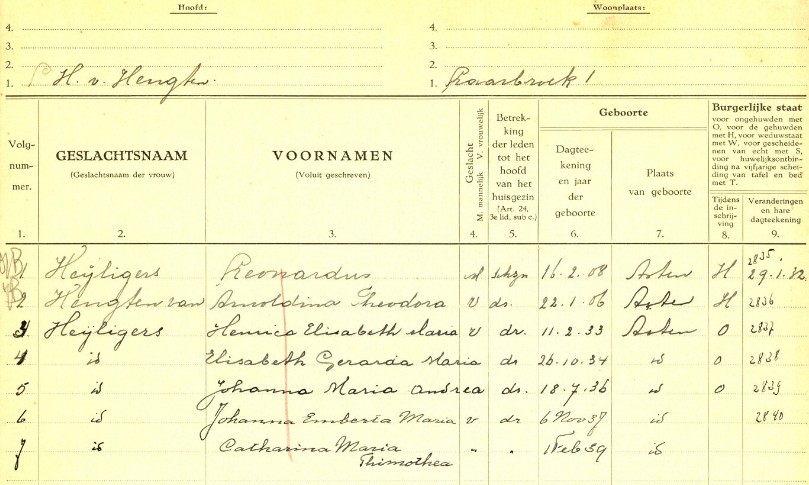 Hoofd: Woonplaats:
4. 4.
3. 3.
2. 2.
1. H. v. Hengten. 1. 1
Volg-
num-
mer.
GESLACHTSNAAM
(Geslachtsnaam der vrouw)
VOORNAMEN
(Voluit geschreven)
Geslacht
M. mannelijk V. vrouwelijk
Betrek-
king
der leden
tot het
hoofd
van het
huisgezin
(Art. 24,
3e lid. sub c.)
Geboorte
Dagtee-
kening
en jaar
der
geboorte
Plaats
van geboorte
Burgerlijke staat
voor ongehuwden met
O, voor de gehuwden
met H, voor weduwstaat
met W, voor gescheide-
nen van echt met S,
voor huwelijksontbin-
ding na vijfjarige schei-
ding van tafel en bed
met T.
Tijdens
de in-
schrij-
ving
Veranderingen
en hare
dagteekening
1. 2. 3. 4. 5. 6. 7. 8. 9.
1 Heijligers Leonardus M 16.2.08 Asten H 2835. 29.1.32.
2 Hengten van Arnoldina Theodora v ds. 22.1.06 Asten H 2836
3 Heijligers Henrica Elisabeth Maria v dr. 11.2.33 Asten O 2837
4 id Elisabeth Gerarda Maria dr 26.10.34 id O 2838
5 id Johanna Maria Andrea dr. 18.7.36 id O 2839
6 id Johanna Emberta Maria v dr 6 Nov 37 id 2840
7 id Catharina Maria " " 1 Feb 39 id
Thimothea